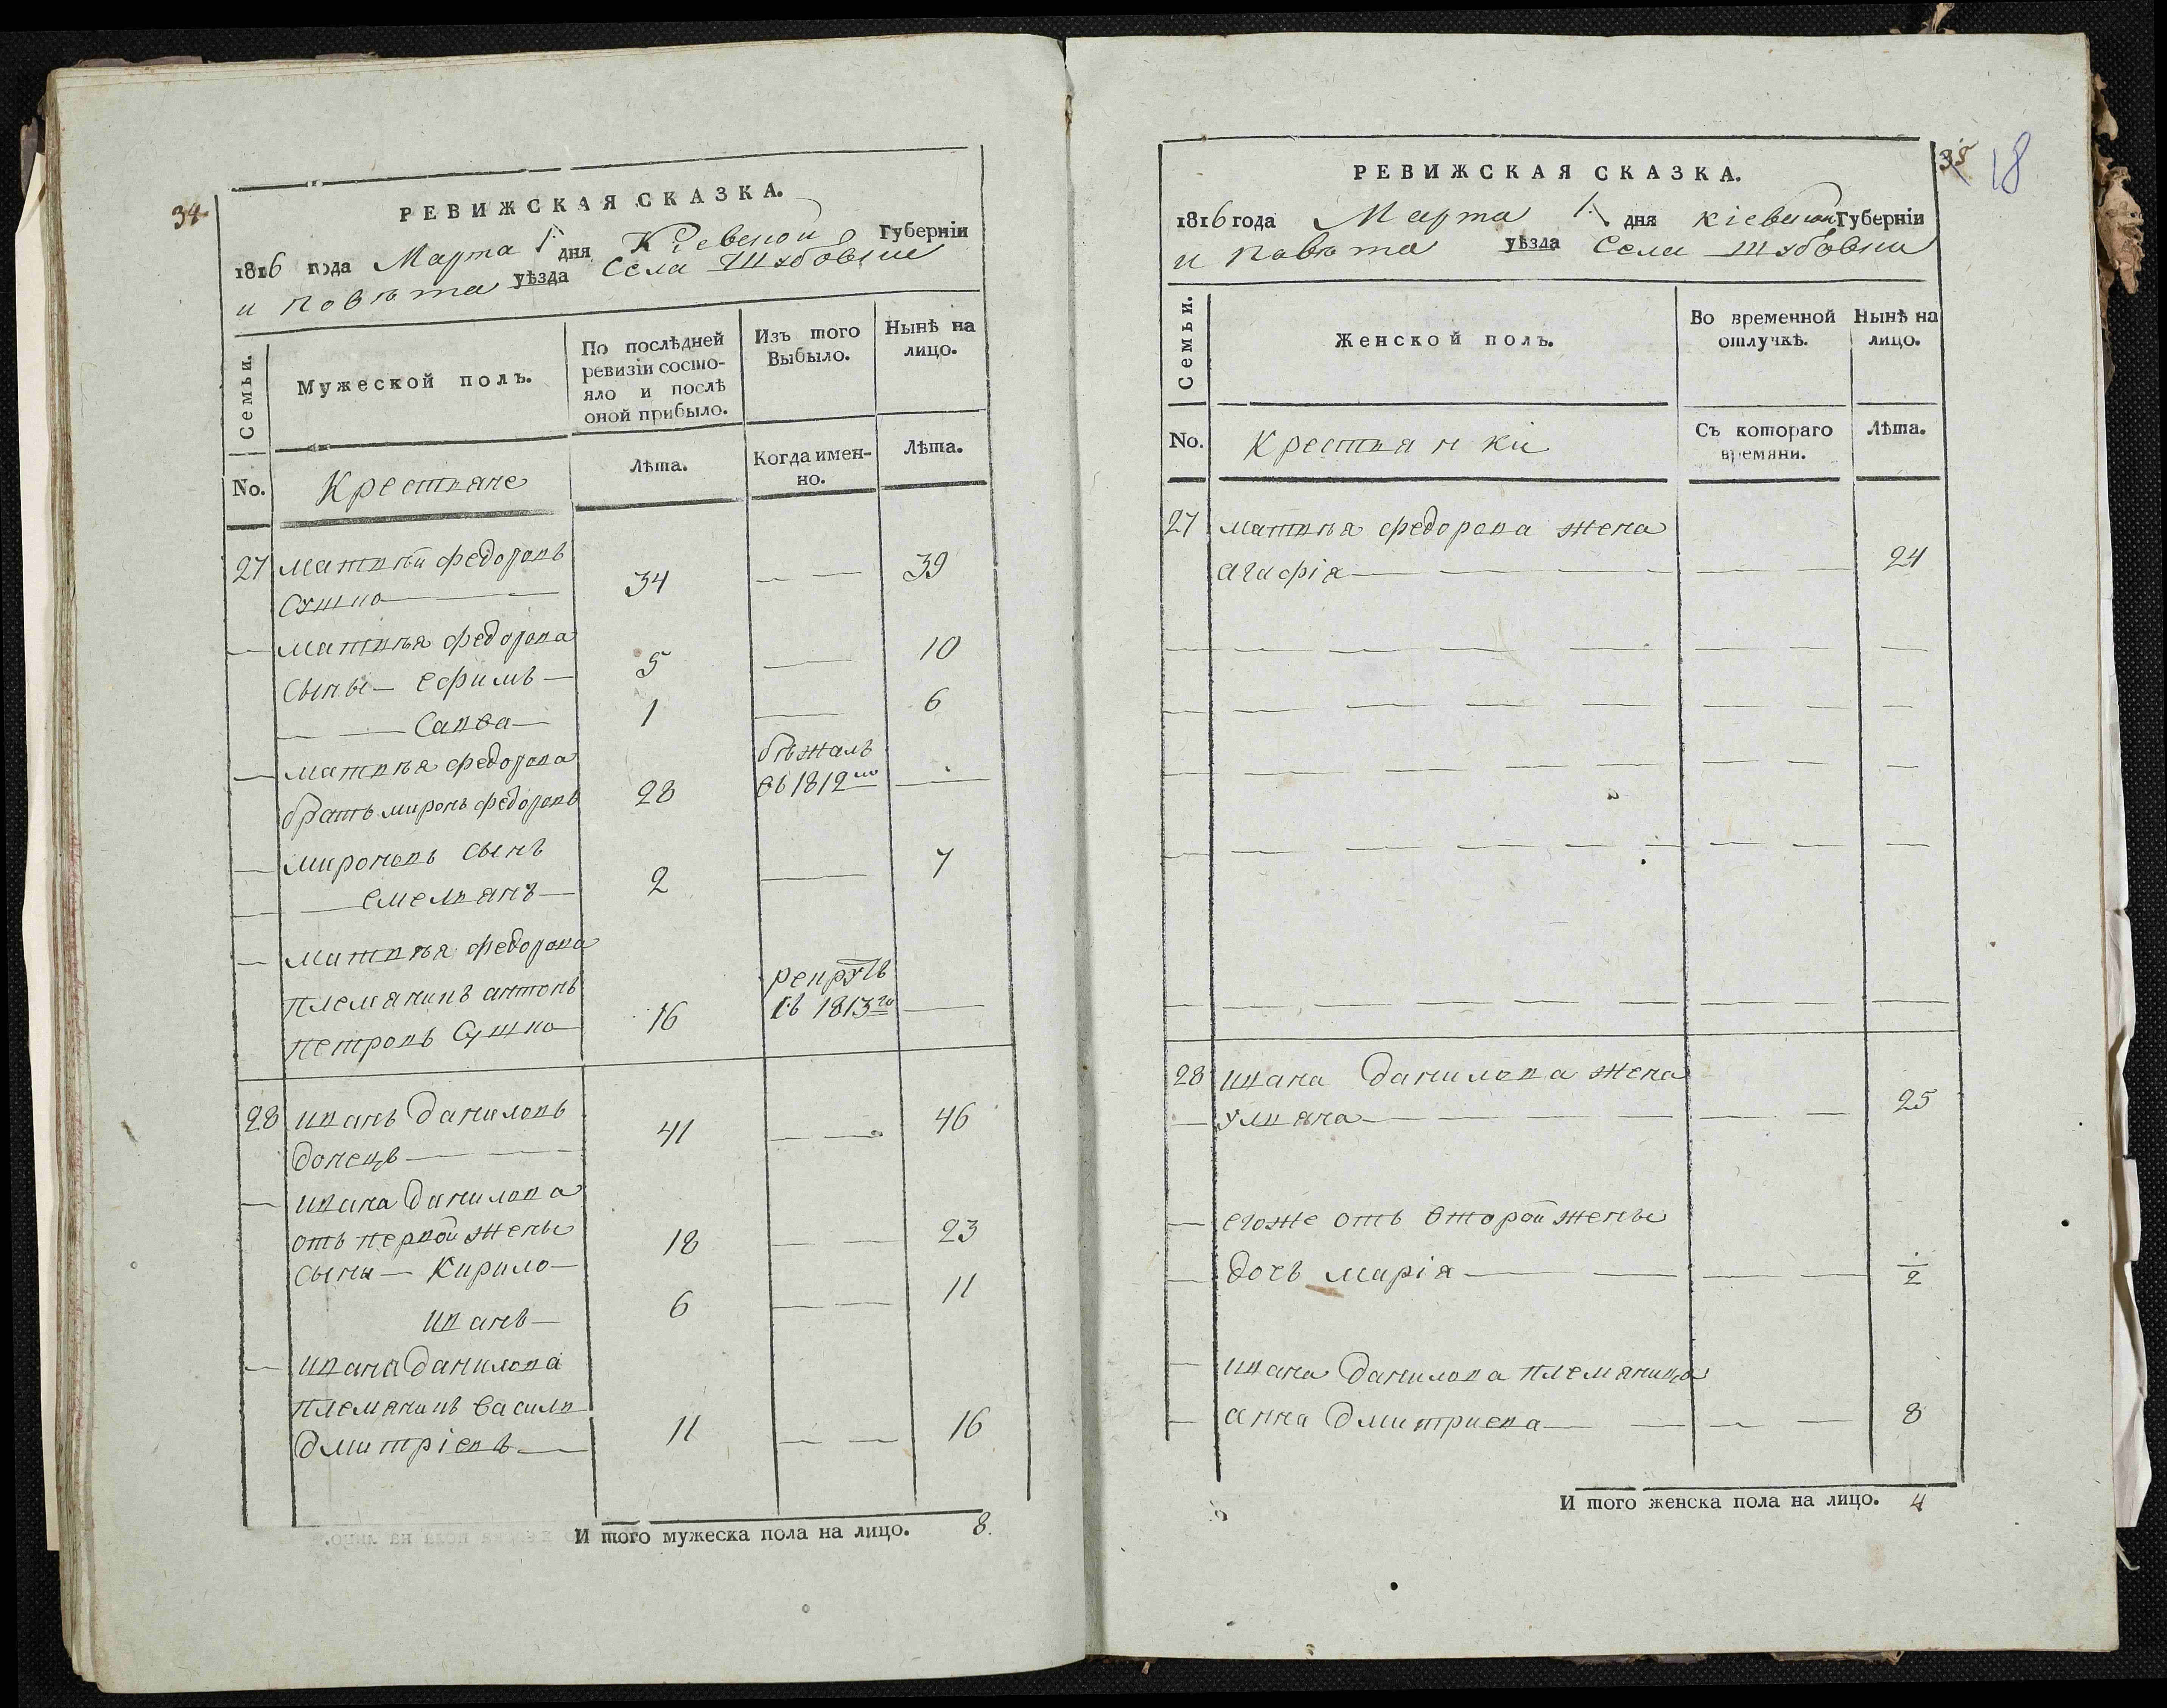 34
РЕВИЖСКАЯ СКАЗКА.
1816 года Марта 1. дня Кіевской Губерніи
и повѣта уѣзда Села
Семьи.
Мужеской полъ.
По послѣдней ревизіи состояло и послѣ оной прибыло.
Изъ того Выбыло.
Нынѣ на лицо.
No.
Крестьяне
Лѣта.
Когда именно.
Лѣта.
27 матвѣй федоровъ
сушко — 34 — — 39
— матвѣя федорова
сыны — ефимъ — 5 — 10
— — савва — 1 — 6
— матвѣя федорова бѣжалъ
братъ миронъ федоровъ 28 въ 1812го —
— мироновъ сынъ
— — емельянъ — 2 — 7
— матвѣя федорова
племяникъ антонъ рекрутъ
петровъ Сушко 16 въ 1813го —
28 иванъ даниловъ
донецъ — — 41 — — 46
— ивана данилова
отъ первой жены
сыны — Кирило — 18 — — 23
иванъ — 6 — — 11
— ивана данилова
племяникъ василь
дмитріевъ — 11 — — 16
И того мужеска пола на лицо. 8.
35 18
РЕВИЖСКАЯ СКАЗКА.
1816 года Марта 1. дня кіевской Губерніи
и повѣта уѣзда Села
Семьи.
Женской полъ.
Во временной отлучкѣ.
Нынѣ на лицо.
No.
Крестьянки
Съ котораго времяни.
Лѣта.
27 матвѣя федорова жена
агафія — — — — — — — 24
28 ивана данилова жена
— ульяна — — — — — — 25
— егоже отъ второй жены
— дочь марія — — — — 1/2
— ивана данилова племяница
— анна дмитриева — — — — 8
И того женска пола на лицо. 4